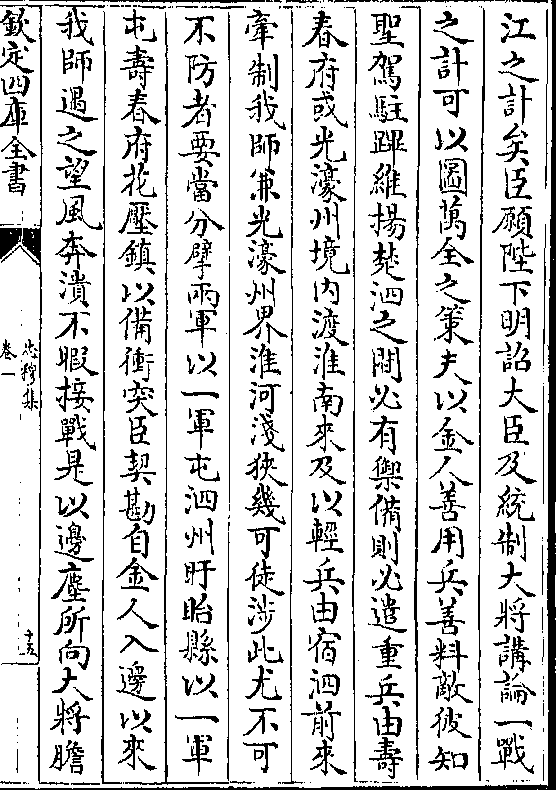 江之計矣臣願陛下明詔大臣及統制大將講論一戰
之計可以圖萬全之策夫以金人善用兵善料敵彼知
聖駕駐蹕維揚楚泗之間必有禦備則必遣重兵由壽
春府或光濠州境内渡淮南來及以輕兵由宿泗前來
牽制我師兼光濠州界淮河淺狹幾可徒涉此尤不可
不防者要當分擘兩軍以一軍屯泗州盱眙縣以一軍
屯壽春府花靨鎮以備衝突臣契勘自金人入邊以來
我師遇之望風奔潰不暇接戰是以邊塵所向大將膽
欽定四庫全書
忠穆集
卷一
十五